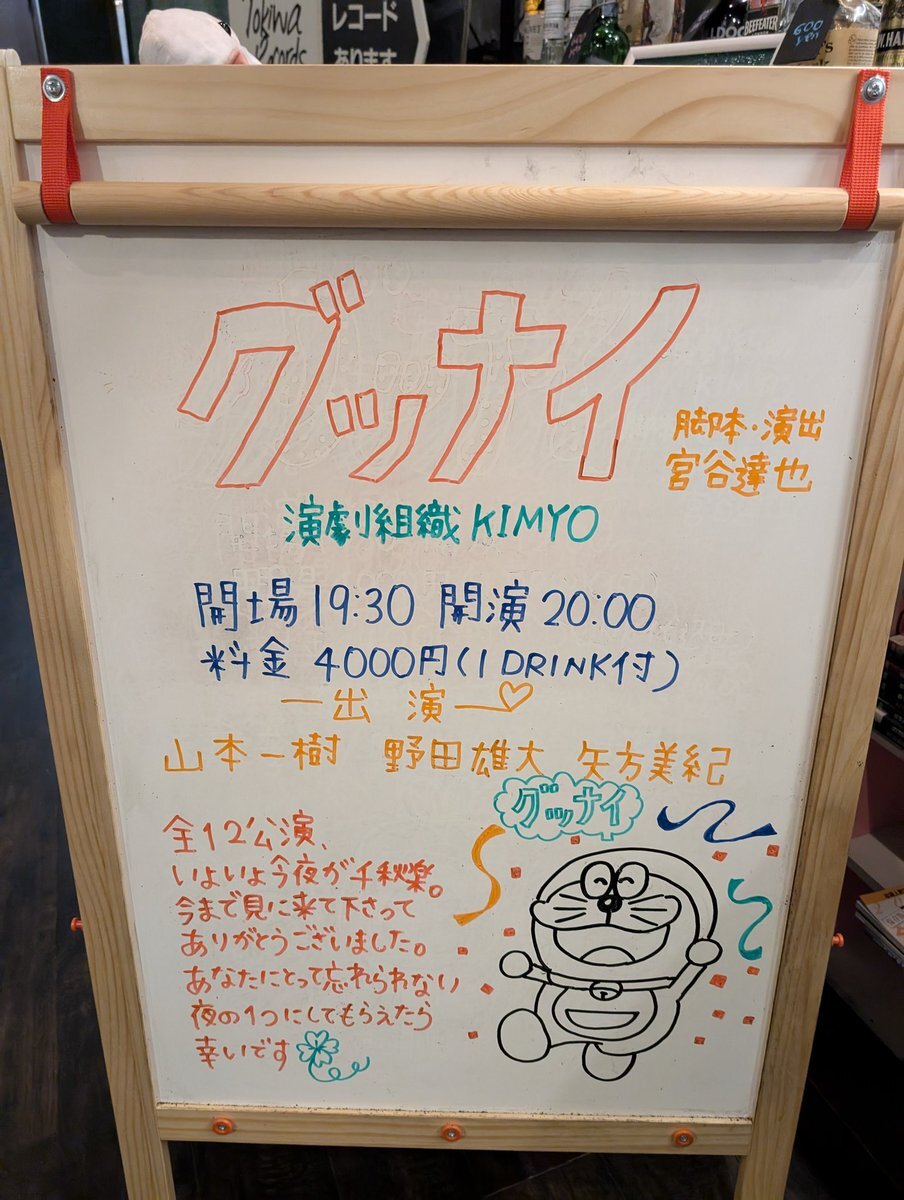 Tokiwa
Records
レコード
あります
BEEFEATER
600
yen
グッナイ
脚本・演出
宮谷達也
演劇組織 KIMYO
開場 19:30 開演 20:00
料金 4000円(1 DRINK付)
一出 演一
山本一樹 野田雄大 矢方美紀
グッナイ
全12公演、
いよいよ今夜が千秋楽。
今まで見に来て下さって
ありがとうございました。
あなたにとって忘れられない
夜の1つにしてもらえたら
幸いです